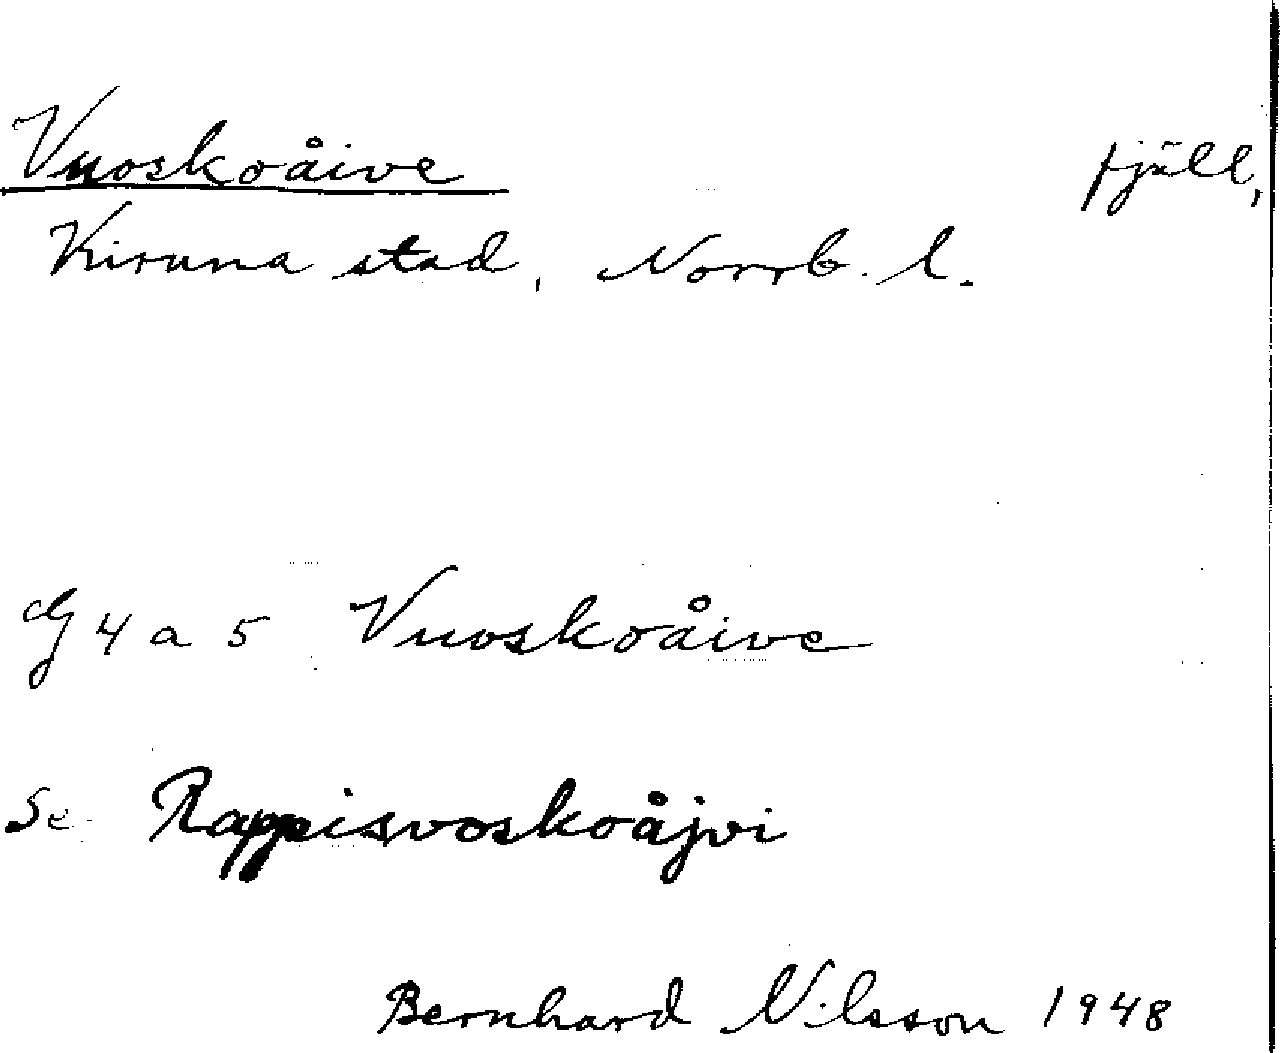 Vuoskoåive fjäll,
Kiruna stad, Norrb. l.
G 4 a 5 Vuoskoåive
Se Rappisvoskoåjvi
Bernhard Nilsson 1948